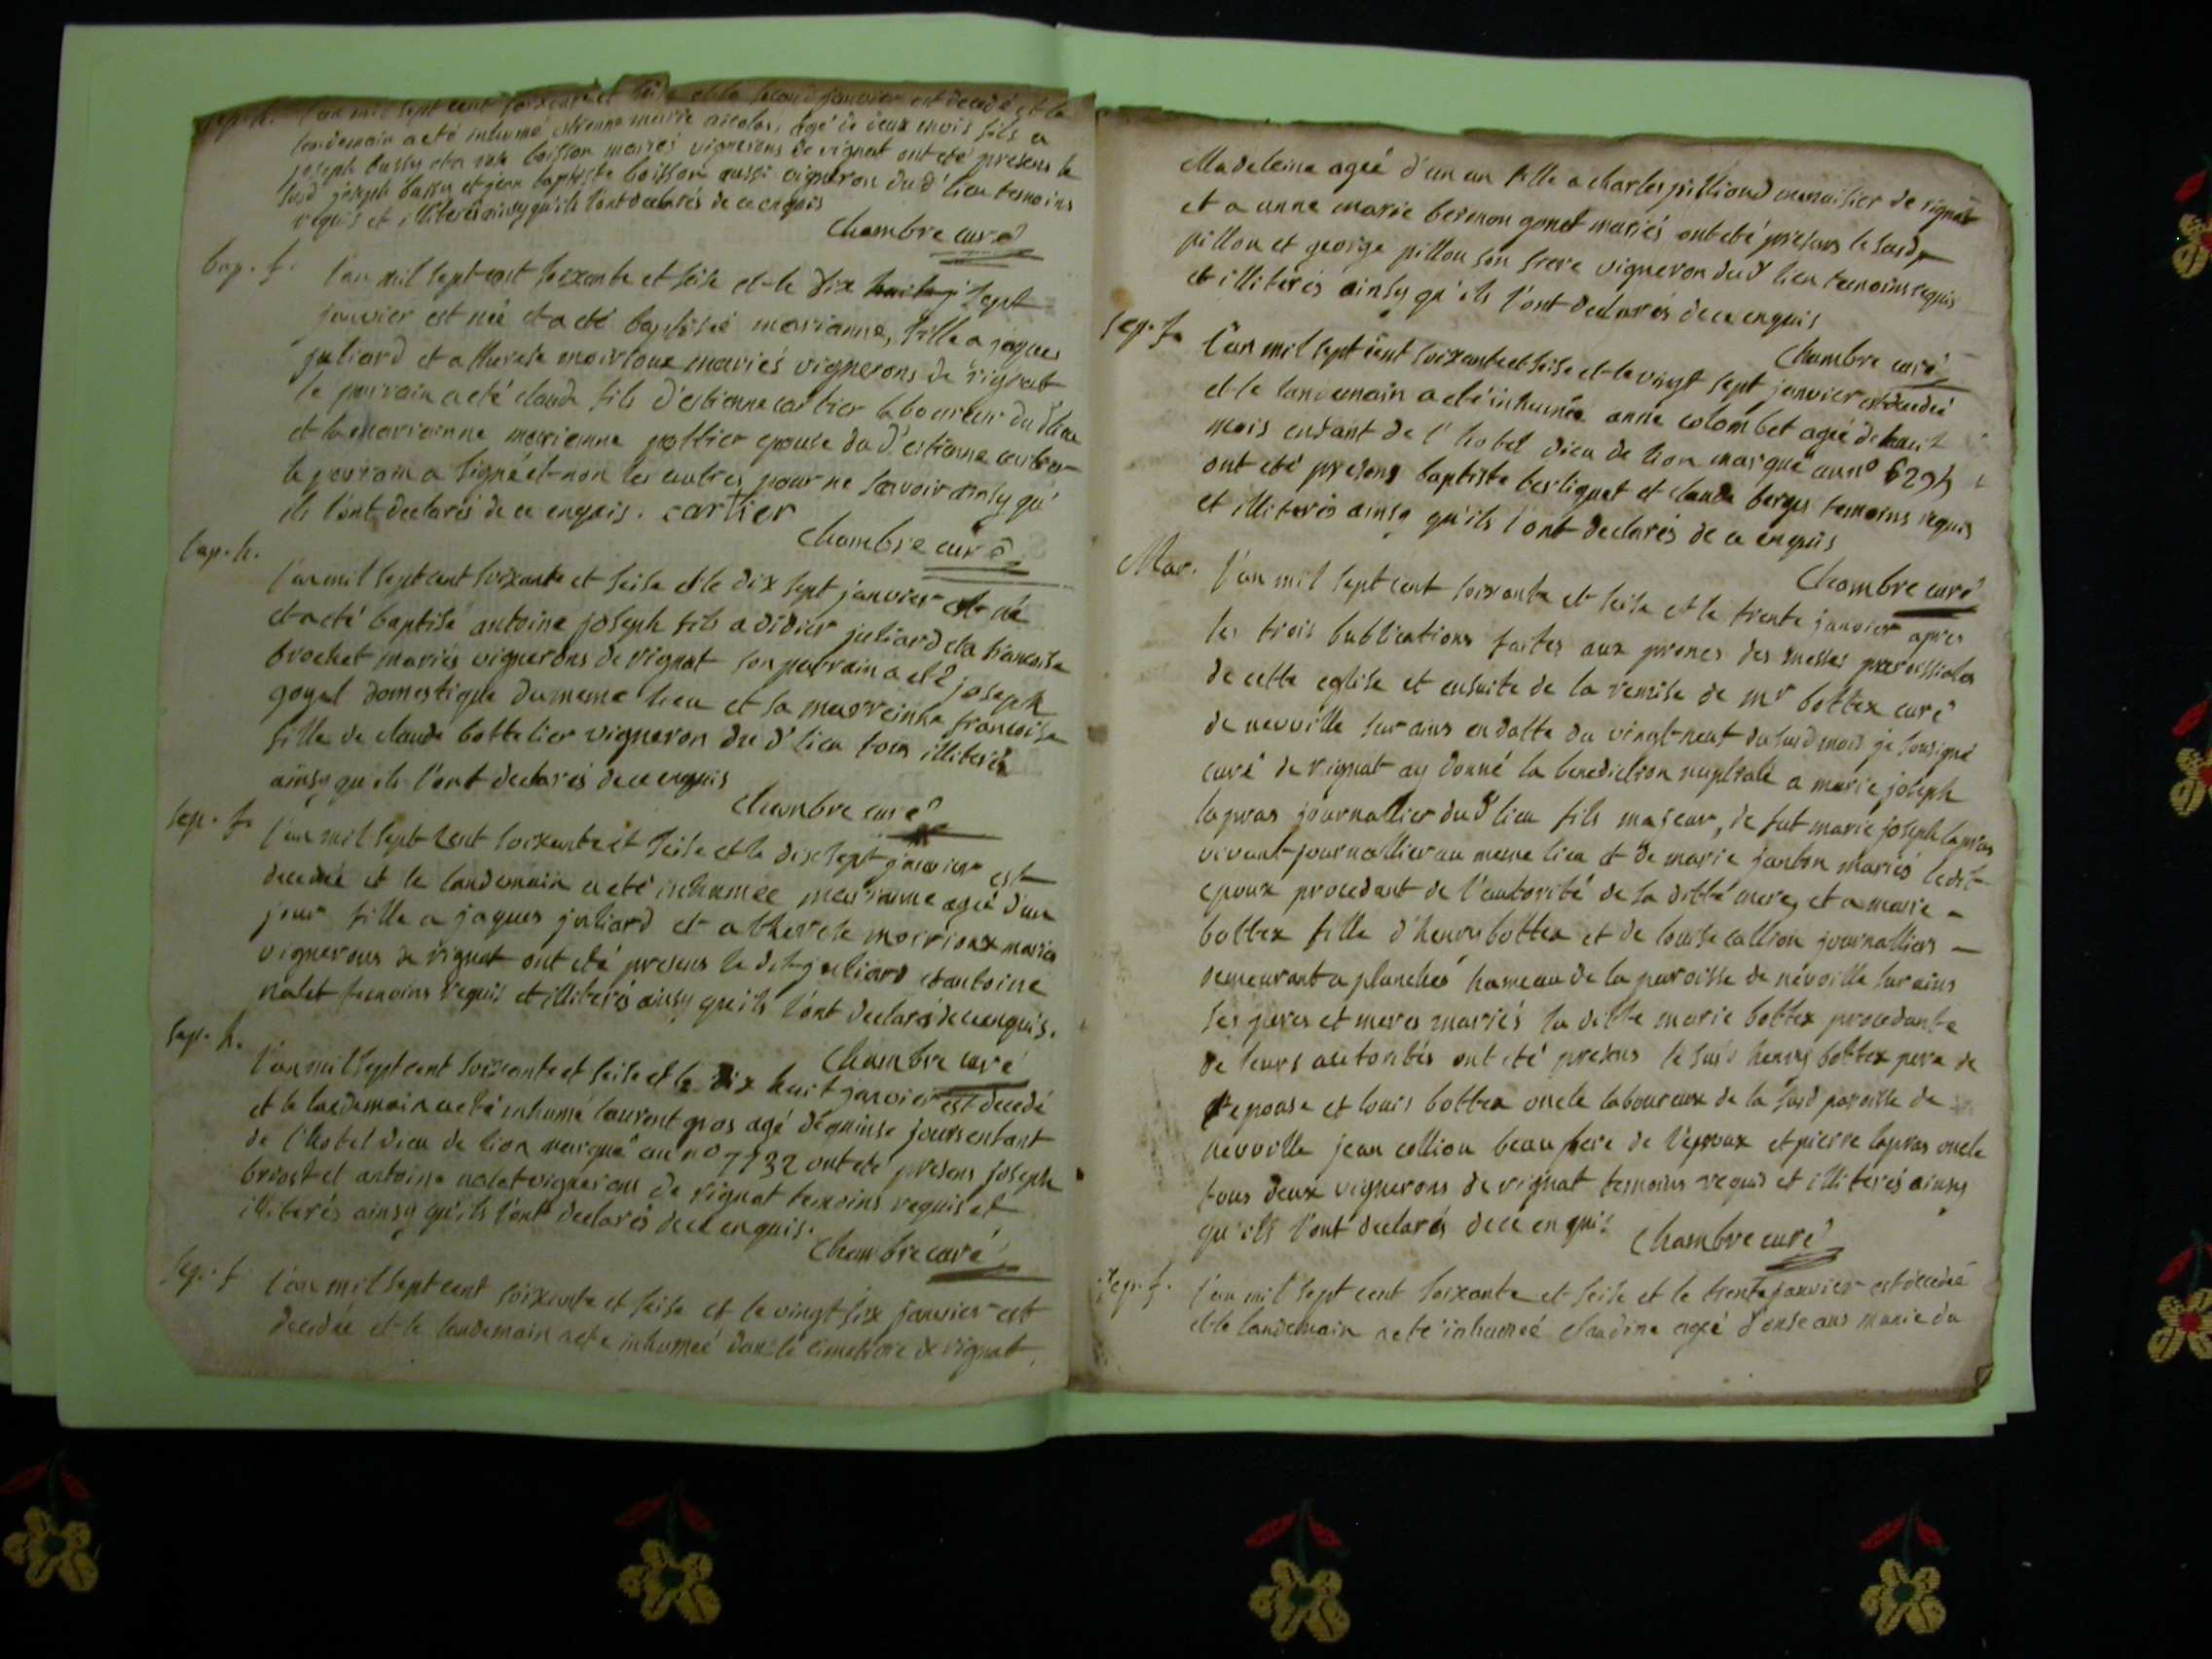 sep. h. l'an mil sept cent soixante et seise et le second janvier est decedé et le
landemain a eté inhumé estienne marie nicolas, agé de deux mois fils a
joseph bassy et a boisson mariés vignerons de rignat ont eté presens le
susd joseph bassy et jean baptiste boisson aussi vigneron dud' lieu temoins
requis et illiterés ainsy qu'ils l'ont declarés de ce enquis
Chambre curé
bap. f. l'an mil sept cent soixante et seise et le dix huit sept
janvier est née et a eté baptisée marianne, fille a jaques
juliard et a therese moirioux mariés vignerons de rignat
le parrain a eté claude fils d'estienne cartier laboureur dud lieu
et la marianne pottier epouse du d' estienne cartier
le parrain a signé et non les autres pour ne scavoir ainsy qu'
ils l'ont declarés de ce enquis. cartier
Chambre curé
bap. h. l'an mil sept cent soixante et seise et le dix sept janvier est né
et a eté baptisé antoine joseph fils a didier juliard et a francoise
brochet mariés vignerons de rignat son parrain a eté joseph
goyet domestique du meme lieu et sa marreinne francoise
fille de claude bottelier vigneron dud' lieu tous illiterés
ainsy qu'ils l'ont declarés de ce enquis
Chambre curé
sep. f. l'an mil sept cent soixante et seise et le dix sept janvier est
decedée et le landemain a eté inhumée marianne agée d'un
jour fille a jaques juliard et a therese moirioux mariés
vignerons de rignat ont eté presens le dit juliard et antoine
nalet temoins requis et illiterés ainsy qu'ils l'ont declarés de ce enquis.
Chambre curé
sep. h. l'an mil sept cent soixante et seise et le dix huit janvier est decedé
et le landemain a eté inhumé laurent gros agé de quinse jours enfant
de l'hotel dieu de lion marqué au n° 7732 ont eté presens joseph
brost et antoine nalet vignerons de rignat temoins requis et
illiterés ainsy qu'ils l'ont declarés de ce enquis.
Chambre curé
sep. f. l'an mil sept cent soixante et seise et le vingt six janvier est
decedée et le landemain a eté inhumée dans le cimetiere de rignat
Madeleine agée d'un an fille a charles pillion menuisier de rignat
et a anne marie bernon gonet mariés ont eté presens le susd
pillon et george pillon son frere vigneron dud lieu temoins requis
et illiterés ainsy qu'ils l'ont declarés de ce enquis
Chambre curé
sep. f. l'an mil sept cent soixante et seise et le vingt sept janvier est decedée
et le landemain a eté inhumée anne colombet agée de huit
mois enfant de l'hotel dieu de lion marqué au n° 6295
ont eté presens baptiste berliguet et claude berger temoins requis
et illiterés ainsy qu'ils l'ont declarés de ce enquis
Chambre curé
Mar. l'an mil sept cent soixante et seise et le trente janvier apres
les trois publications faites aux prones des messes parroissiales
de cette eglise et ensuite de la remise de mr bottex curé
de neuville sur ains en datte du vingt neuf dususd mois je sousigné
curé de rignat ay donné la benediction nuptiale a marie joseph
lapras journallier dud lieu fils majeur, de fut marie joseph lapras
vivant journallier au meme lieu et de marie janton mariés ledit
epoux procedant de l'autorité de sa ditte mere, et a marie
bottex fille d'henry bottex et de louise collion journalliers
demeurant a planches hameau de la paroisse de nevville sur ains
ses peres et meres mariés la ditte marie bottex procedante
de leurs autorités ont eté presens le susd henry bottex pere de
l'epouse et louis bottex oncle laboureux de la susd paroisse de
nevville jean collion beaufrere de l'epoux et pierre lapras oncle
tous deux vignerons de rignat temoins requis et illiterés ainsy
qu'ils l'ont declarés de ce enquis Chambre curé
sep. f. l'an mil sept cent soixante et seise et le trente janvier est decedée
et le landemain a eté inhumée claudine agée d'onse ans munie du